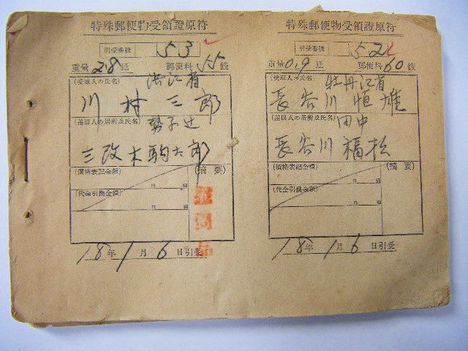 特殊郵便物受領證原符
引受番號 53
重量 28 瓩 郵便料 55 錢
(受取人ノ氏名)
濱江省
川村三郎
(差出人の居所及氏名)
三改木駒太郎
(價格表記金額)
(摘要)
(代金引換金額)
18年1月6日引受
特殊郵便物受領證原符
引受番號 52
重量 0.9 瓩 郵便料 60 錢
(受取人ノ氏名)
牡丹江省
長谷川恒雄
(差出人の居所及氏名)
田中
長谷川福松
(價格表記金額)
(摘要)
(代金引換金額)
18年1月6日引受